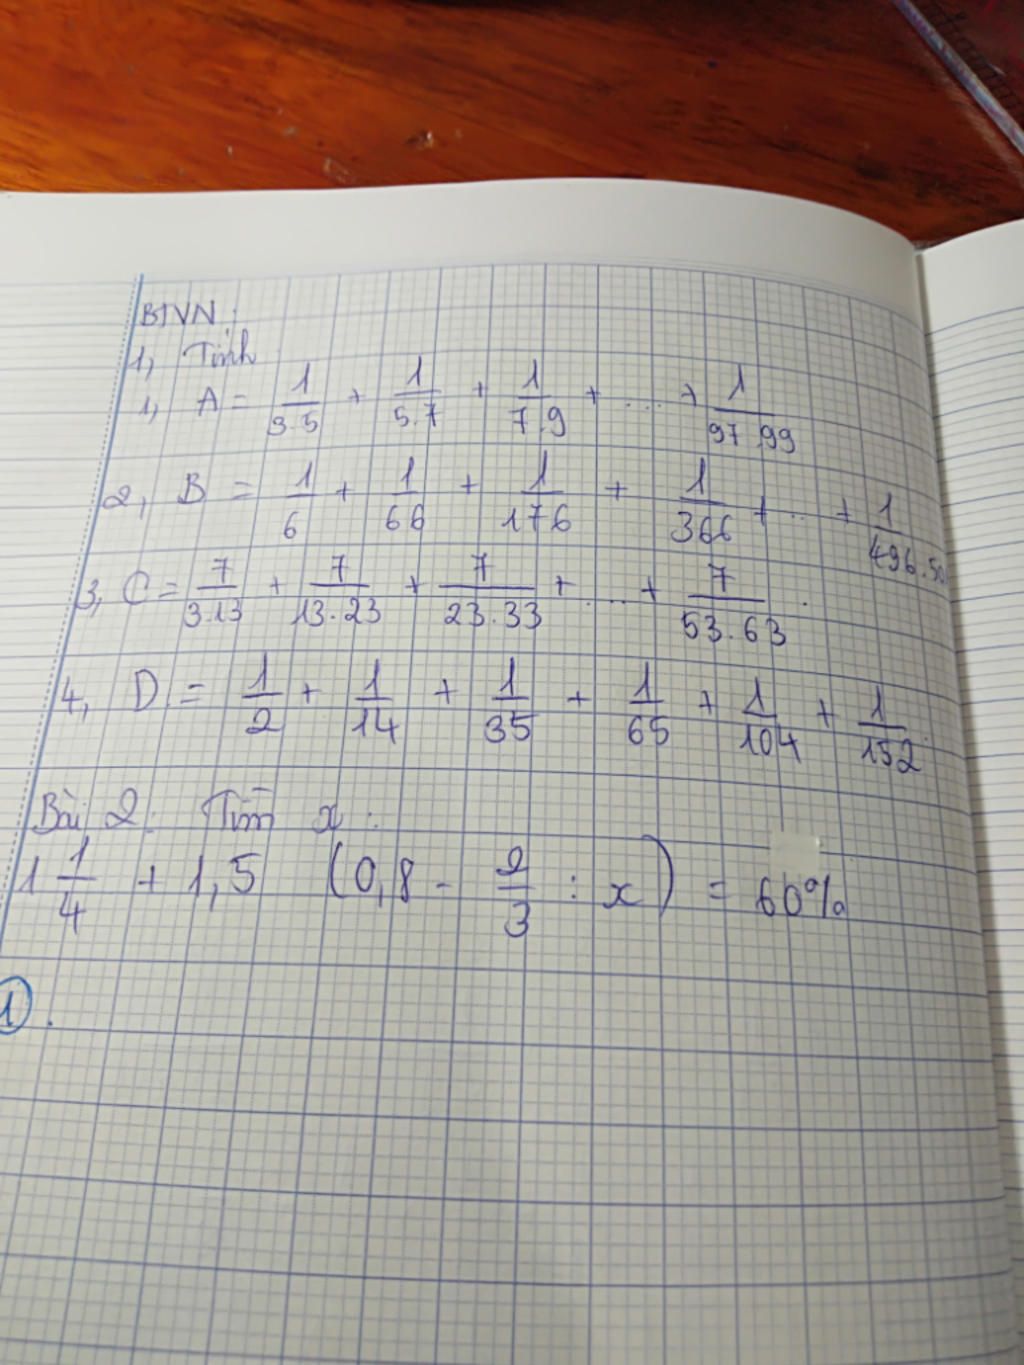 BTVN:
1, Tính
1, A = 1/3.5 + 1/5.7 + 1/7.9 + ... + 1/97.99
2, B = 1/6 + 1/66 + 1/176 + 1/366 + ... + 1/496.501
3, C = 7/3.13 + 7/13.23 + 7/23.33 + ... + 7/53.63.
4, D = 1/2 + 1/14 + 1/35 + 1/65 + 1/104 + 1/152.
Bài 2: Tìm x:
1 1/4 + 1,5 (0,8 - 2/3 : x) = 60%
1.